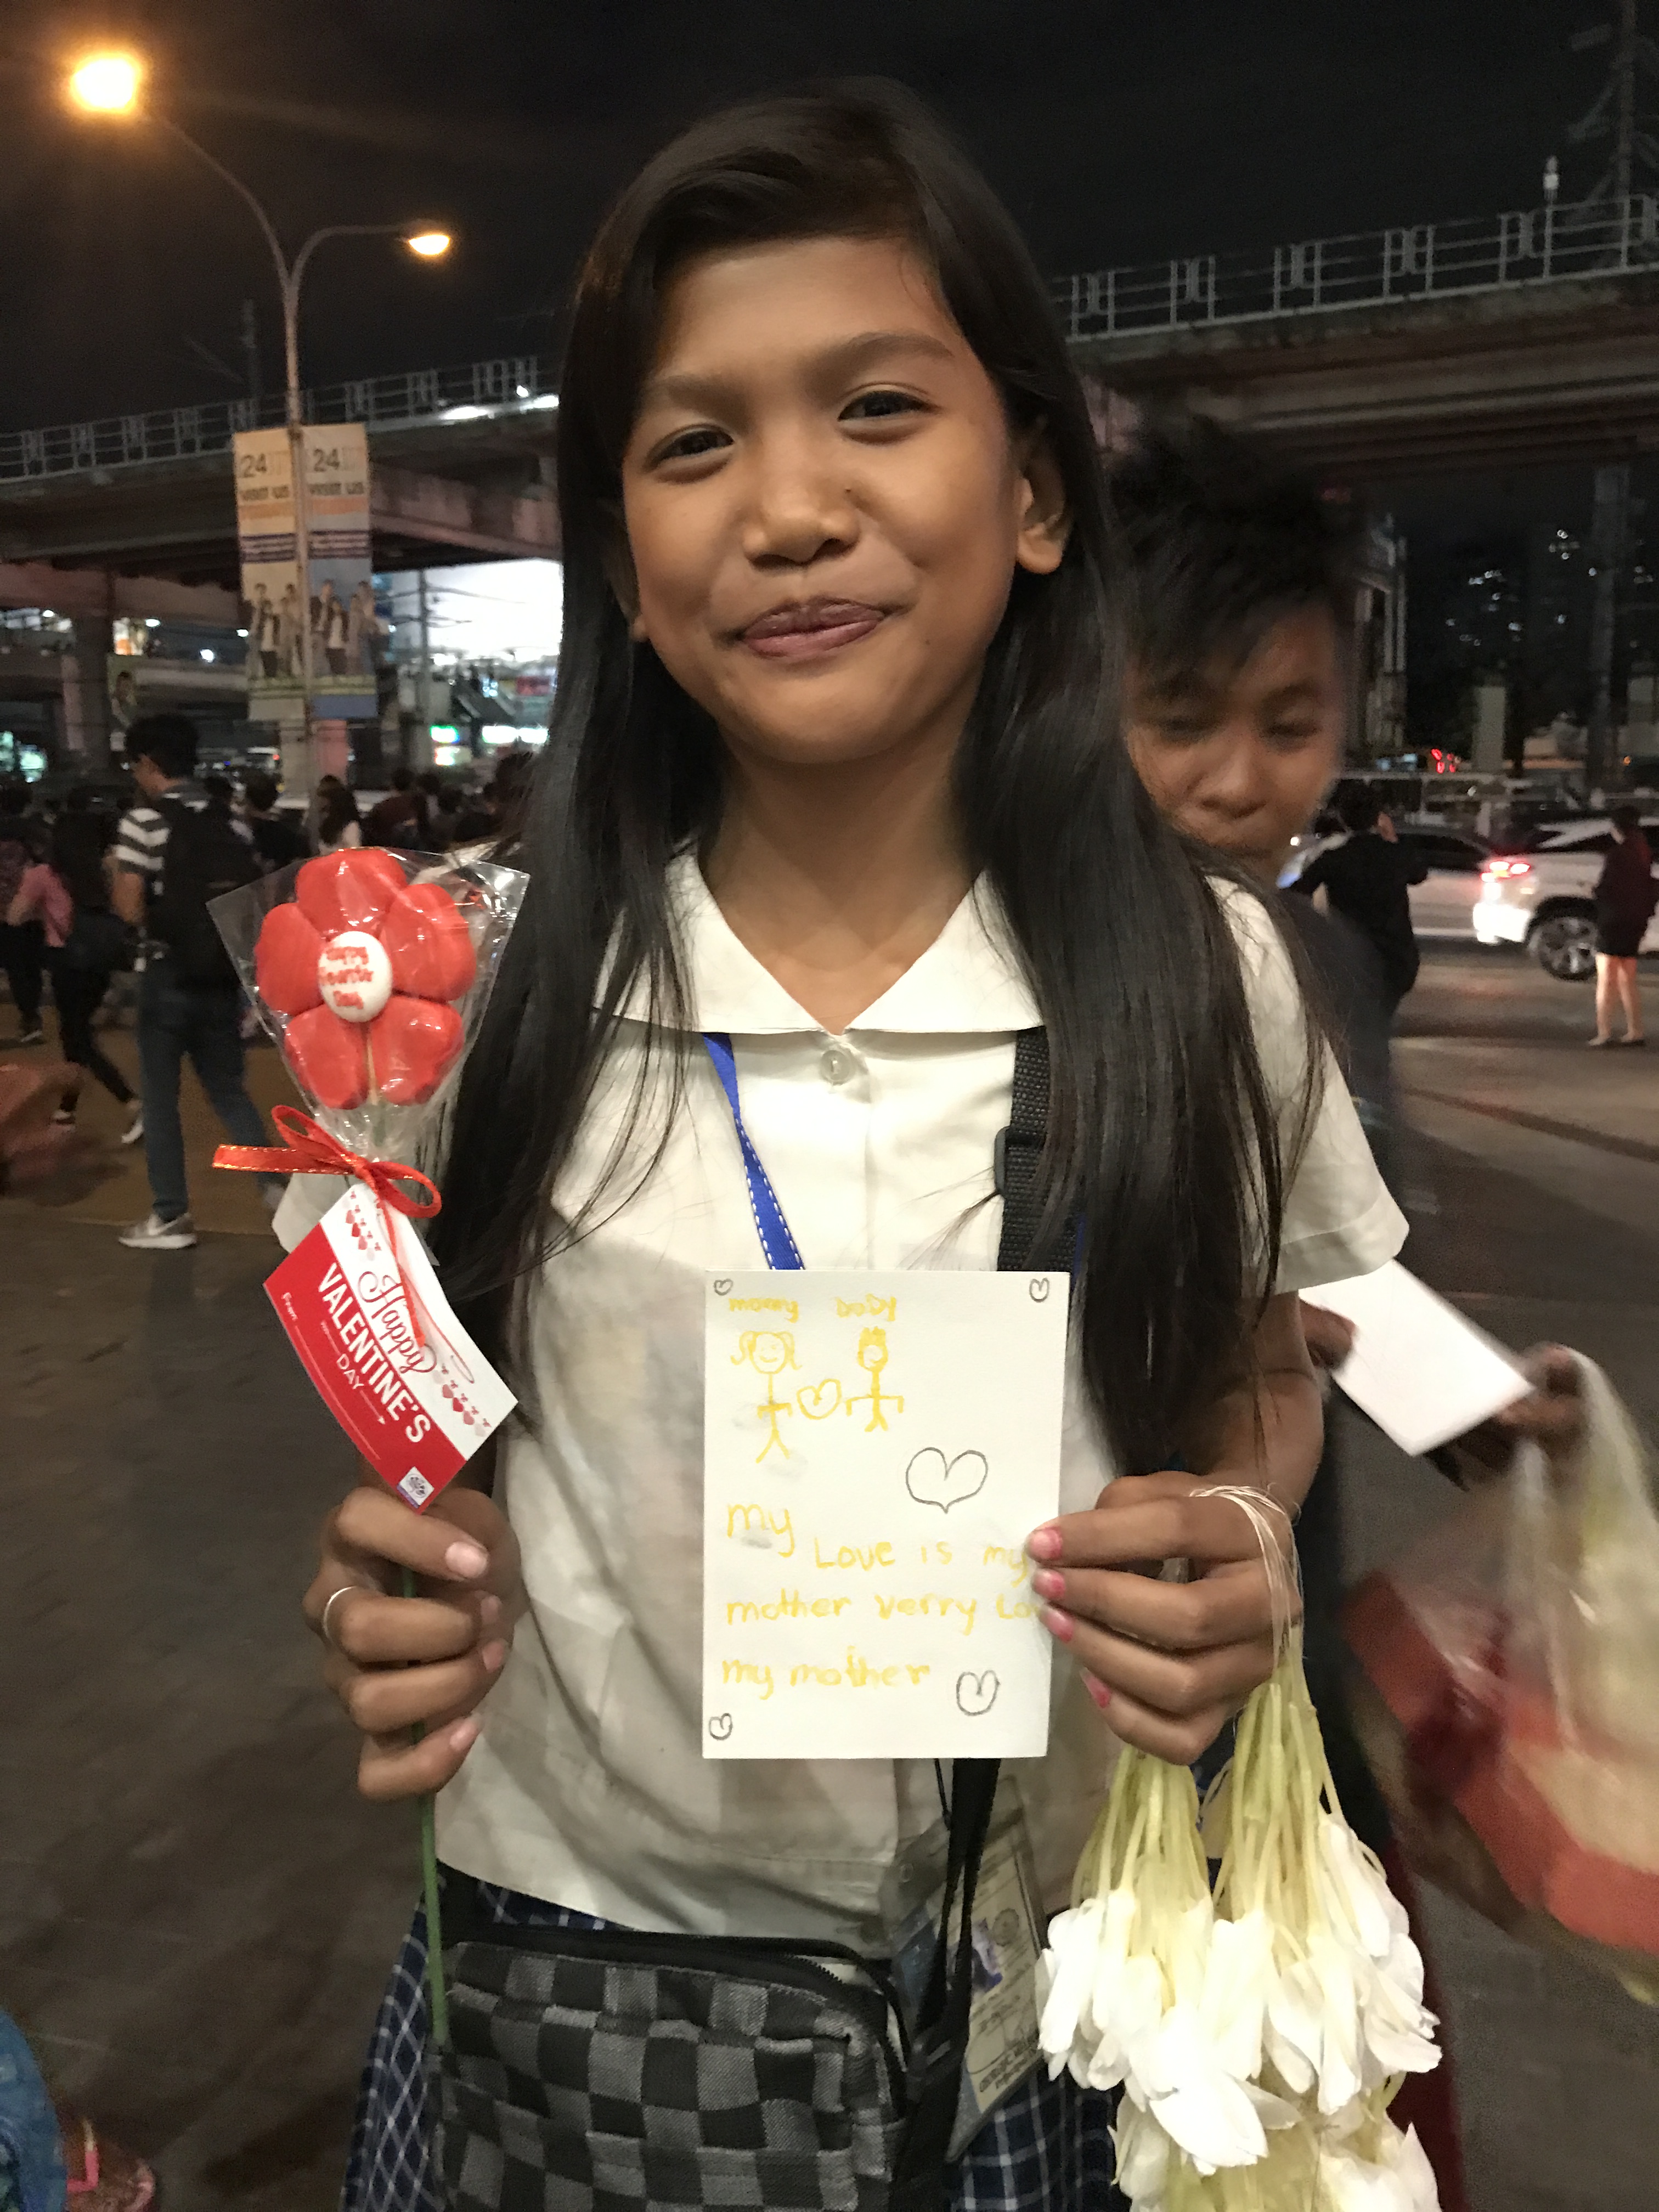 24
VISIT US
24
VISIT US
Happy
Valentine's
Day
Happy
VALENTINE'S
DAY
From:
momy daDy
my
Love is my
mother verry Lo
my mother